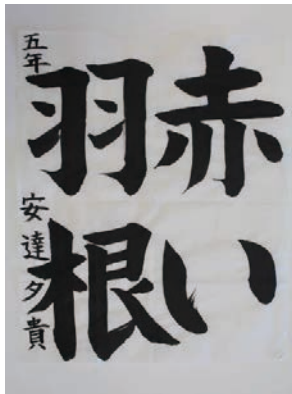 赤い
羽根
五年 安達夕貴